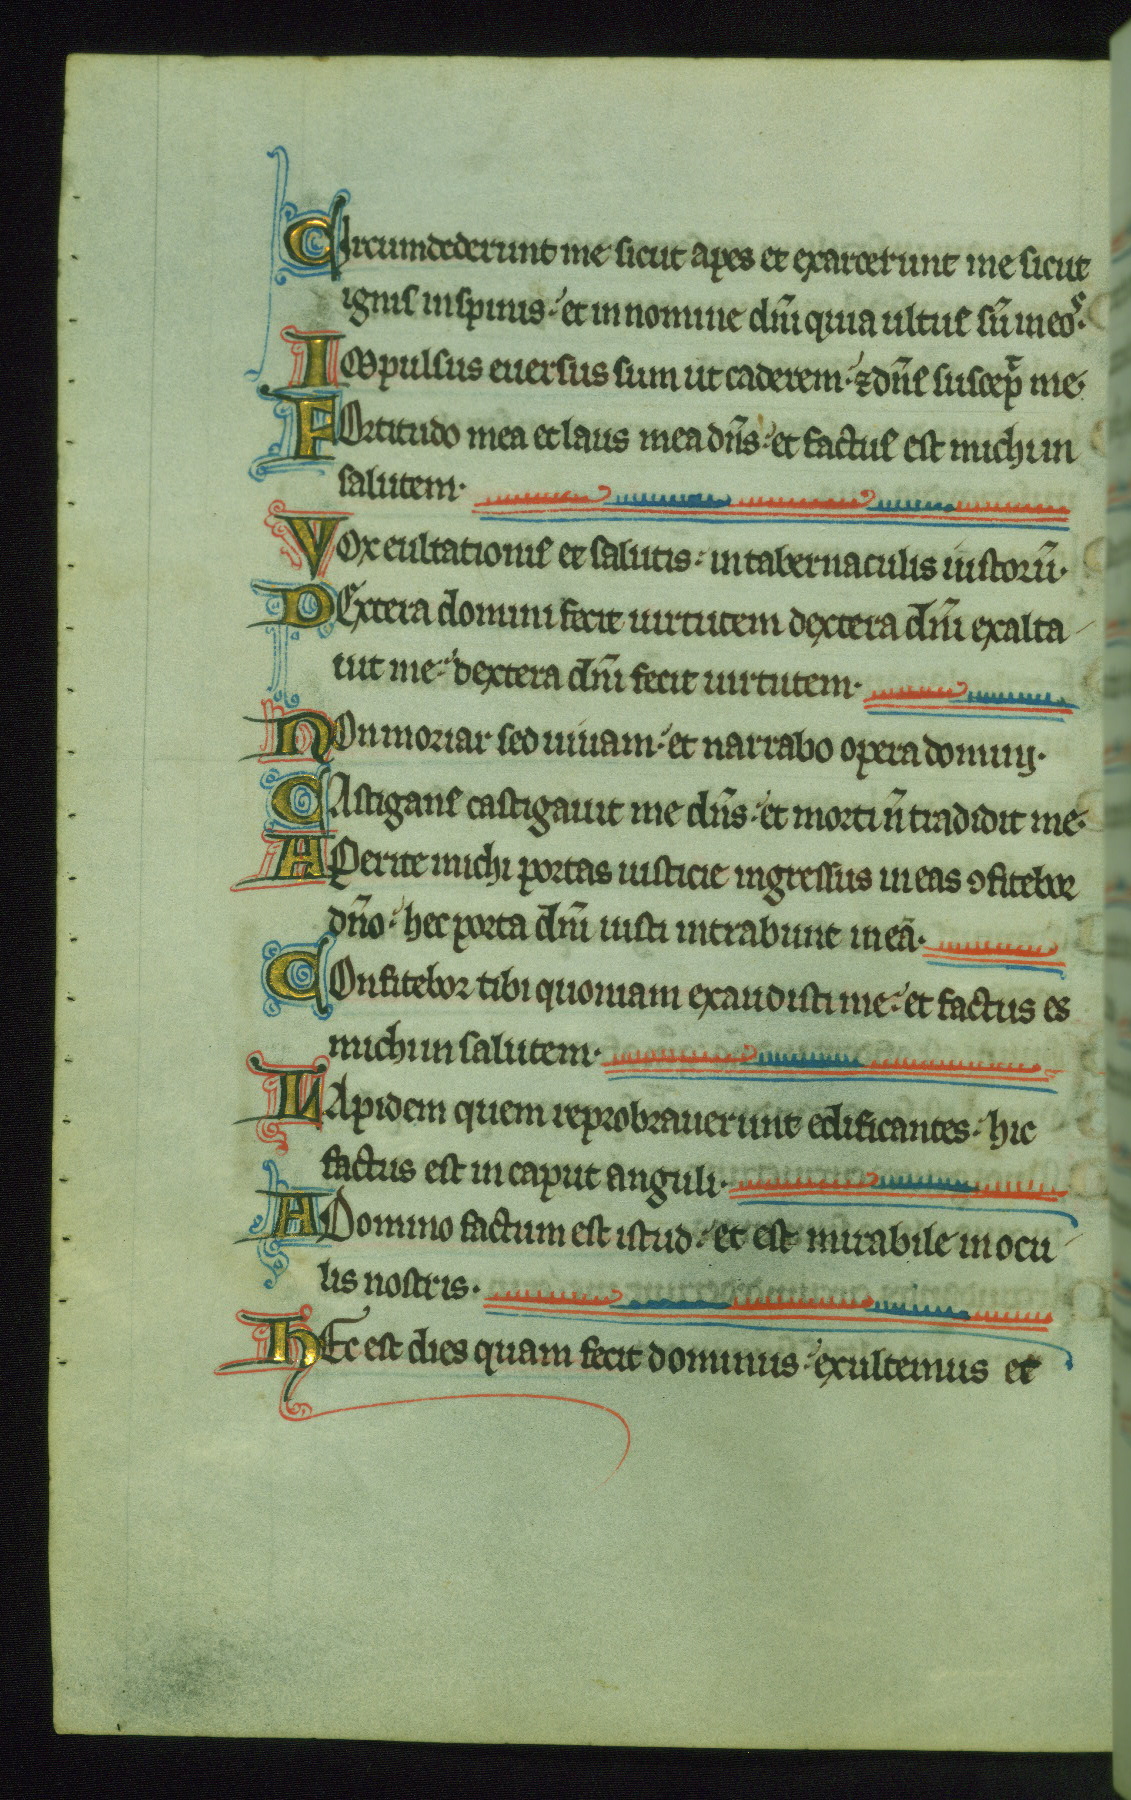 Circumdederunt me sicut apes et exarcerunt me sicut
ignis in spinis· et in nomine dñi quia ultus sũ in eos·
Impulsus euersus sum ut caderem· ⁊ dñs suscep̃ me·
Fortitudo mea et laus mea dñs· et factus est michi in
salutem·
Vox eultationis et salutis· in tabernaculis iustorũ·
Dextera domini fecit uirtutem dextera dñi exalta
uit me· dextera dñi fecit uirtutem·
Non moriar sed uiuam· et narrabo opera dominj·
Castigans castigauit me dñs· et morti ñ tradidit me·
Aperite michi portas iusticie ingressus in eas ꝯfitebor
dño· hec porta dñi iusti intrabunt in eã·
Confitebor tibi quoniam exaudisti me· et factus es
michi in salutem·
Lapidem quem reprobrauerunt edificantes· hic
factus est in caput anguli·
A Domino factum est istud· et est mirabile in ocu
lis nostris·
Hec est dies quam fecit dominus· exultemus et